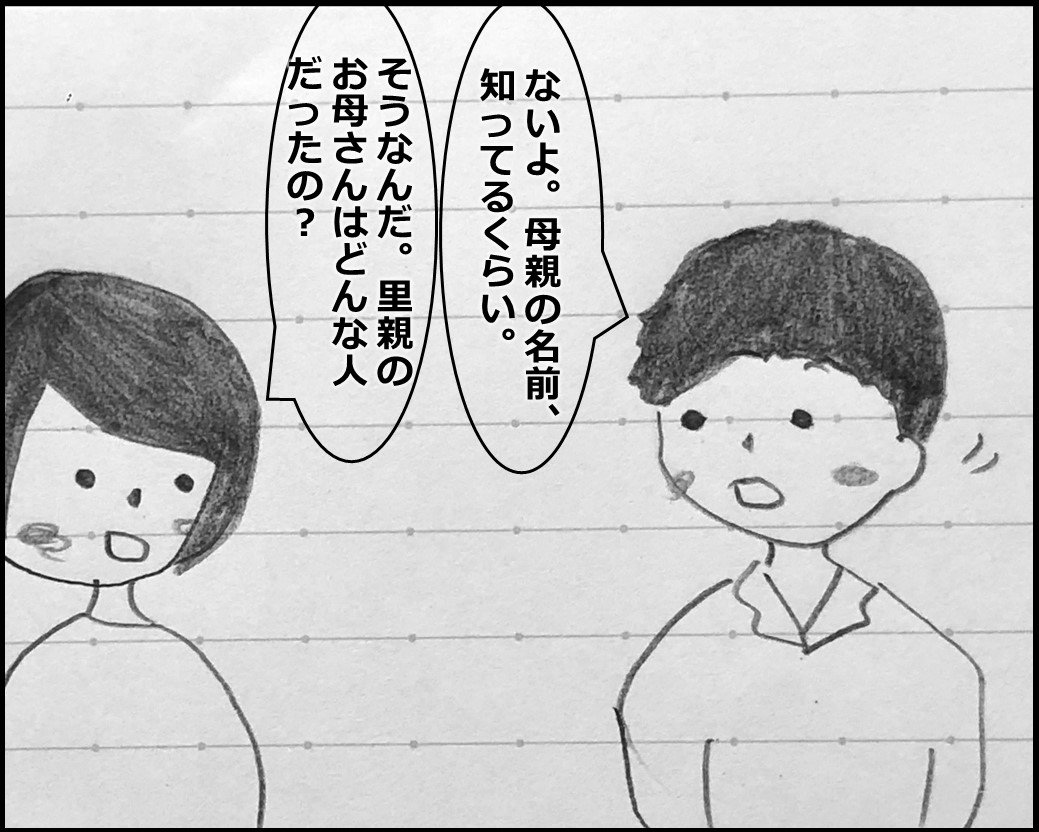 ないよ。母親の名前、
知ってるくらい。
そうなんだ。里親の
お母さんはどんな人
だったの？